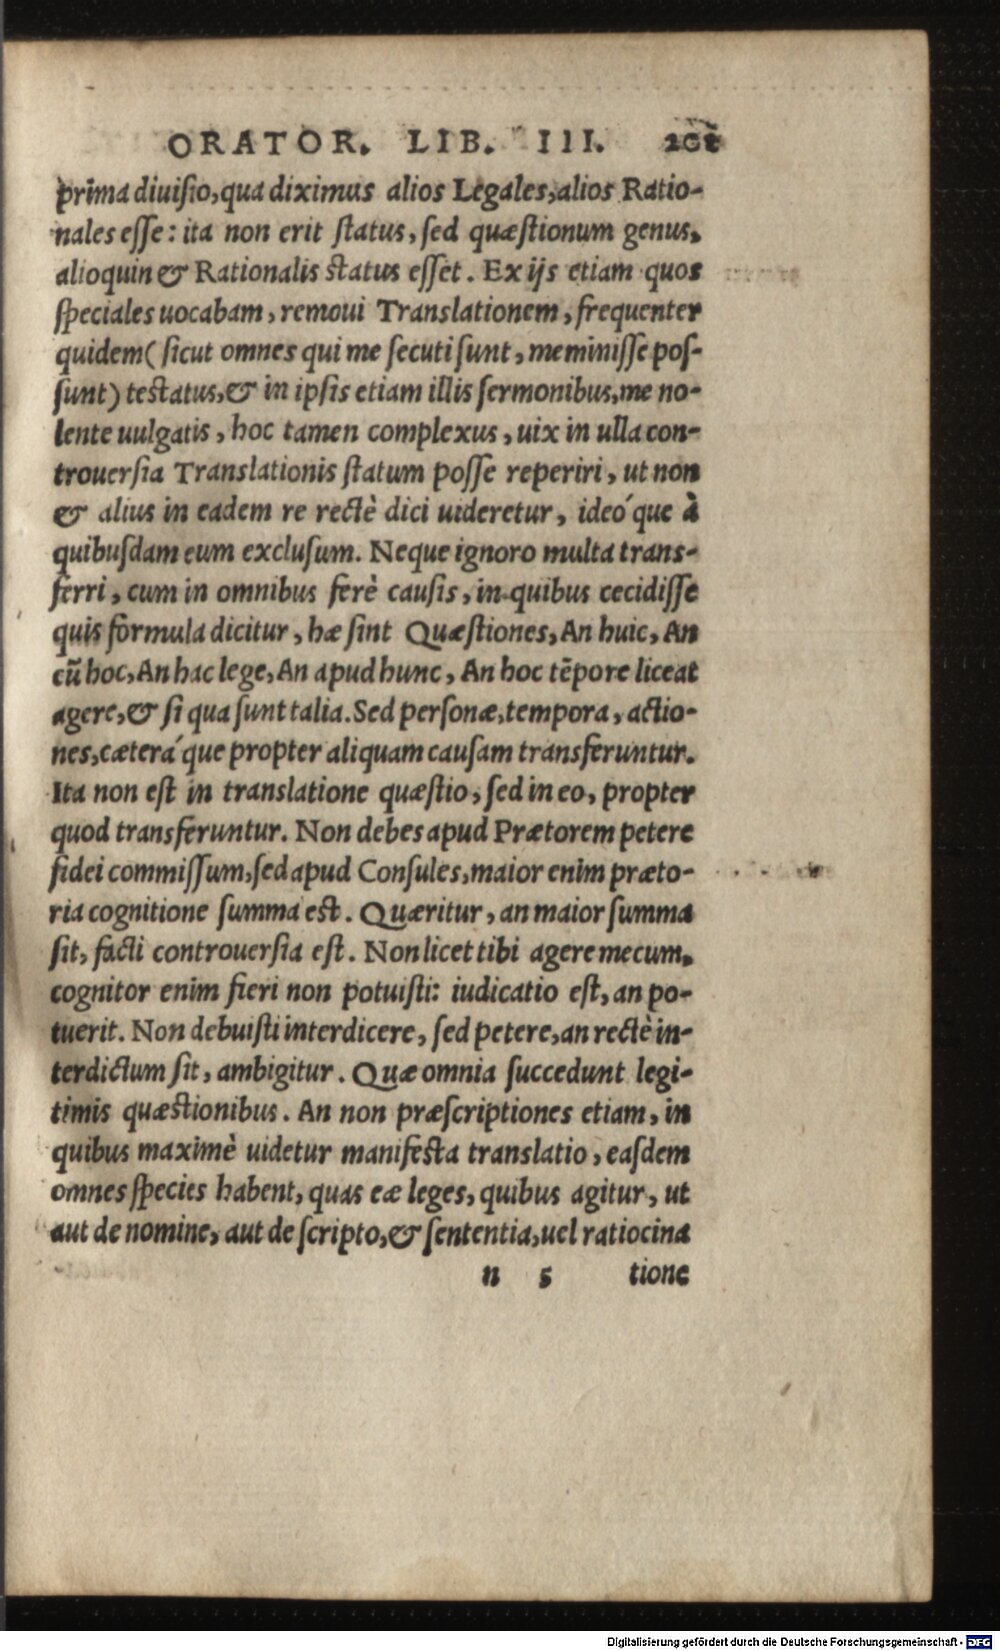 ORATOR. LIB. III. 201
prima diuisio, qua diximus alios Legales, alios Ratio-
nales esse: ita non erit status, sed quæstionum genus,
alioquin & Rationalis status esset. Ex ijs etiam quos
speciales uocabam, remoui Translationem, frequenter
quidem ( sicut omnes qui me secuti sunt, meminisse pos-
sunt) testatus, & in ipsis etiam illis sermonibus, me no-
lente uulgatis, hoc tamen complexus, uix in ulla con-
trouersia Translationis statum posse reperiri, ut non
& alius in eadem re rectè dici uideretur, ideó que à
quibusdam eum exclusum. Neque ignoro multa trans-
ferri, cum in omnibus ferè causis, in quibus cecidisse
quis formula dicitur, hæ sint Quæstiones, An huic, An
cũ hoc, An hac lege, An apud hunc, An hoc tẽpore liceat
agere, & si qua sunt talia. Sed personæ, tempora, actio-
nes, cæterá que propter aliquam causam transferuntur.
Ita non est in translatione quæstio, sed in eo, propter
quod transferuntur. Non debes apud Prætorem petere
fidei commissum, sed apud Consules, maior enim præto-
ria cognitione summa est. Quæritur, an maior summa
sit, facti controuersia est. Non licet tibi agere mecum,
cognitor enim fieri non potuisti: iudicatio est, an po-
tuerit. Non debuisti interdicere, sed petere, an rectè in-
terdictum sit, ambigitur. Quæ omnia succedunt legi-
timis quæstionibus. An non præscriptiones etiam, in
quibus maximè uidetur manifesta translatio, easdem
omnes species habent, quas eæ leges, quibus agitur, ut
aut de nomine, aut de scripto, & sententia, uel ratiocina
n 5 tione
Digitalisierung gefördert durch die Deutsche Forschungsgemeinschaft - DFG